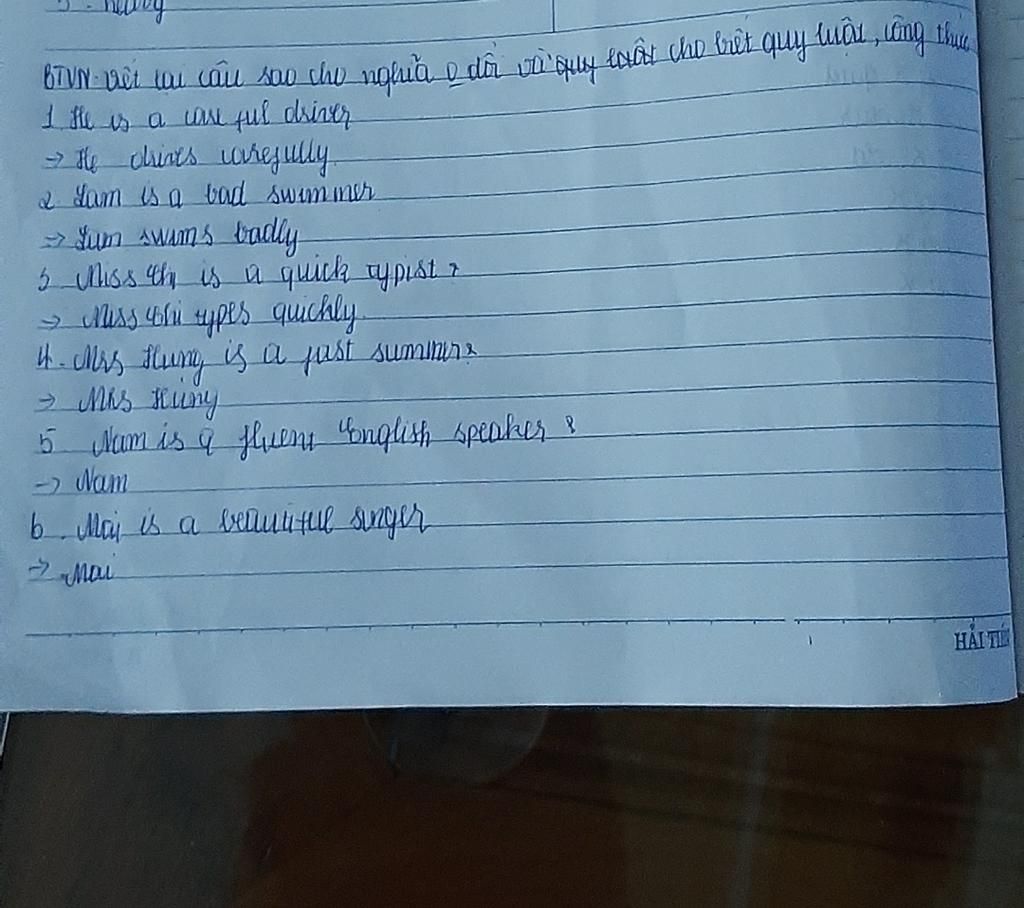 BTVN: viết lại câu sao cho nghĩa o đổi và quy luật cho biết quy luật, công thức
1 He is a careful driver
→ He drives carefully
2 Lam is a bad swimmer
→ Lam swims badly
3 Miss is a quick typist
→ Miss types quickly
4. Mrs Hung is a fast
→ Mrs Hung
5 Nam is a fluent English speaker
→ Nam
6. Mai is a beautiful singer
→ Mai
HẢI